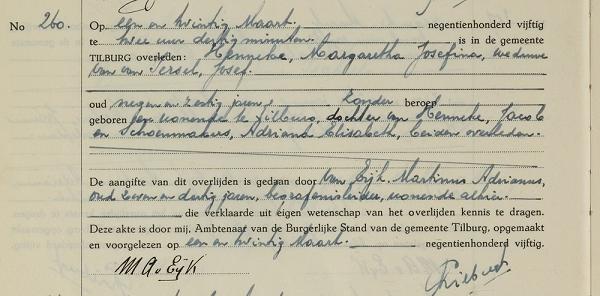 No 260.
Op een en twintig Maart. negentienhonderd vijftig
te twee uur dertig minuten. is in de gemeente
TILBURG overleden: Henneke, Margaretha Josefina, weduwe
van van Iersel, Josef.
oud negen en zestig jaren, zonder beroep
geboren en wonende te Tilburg, dochter van Henneke, Jacob
en Schoenmakers, Adriana Elisabeth, beiden overleden.
De aangifte van dit overlijden is gedaan door van Eijk, Martinus Adrianus,
oud zeven en dertig jaren, begrafenisleider, wonende alhier.
, die verklaarde uit eigen wetenschap van het overlijden kennis te dragen.
Deze akte is door mij, Ambtenaar van de Burgerlijke Stand van de gemeente Tilburg, opgemaakt
en voorgelezen op een en twintig Maart. negentienhonderd vijftig.
M A v Eijk